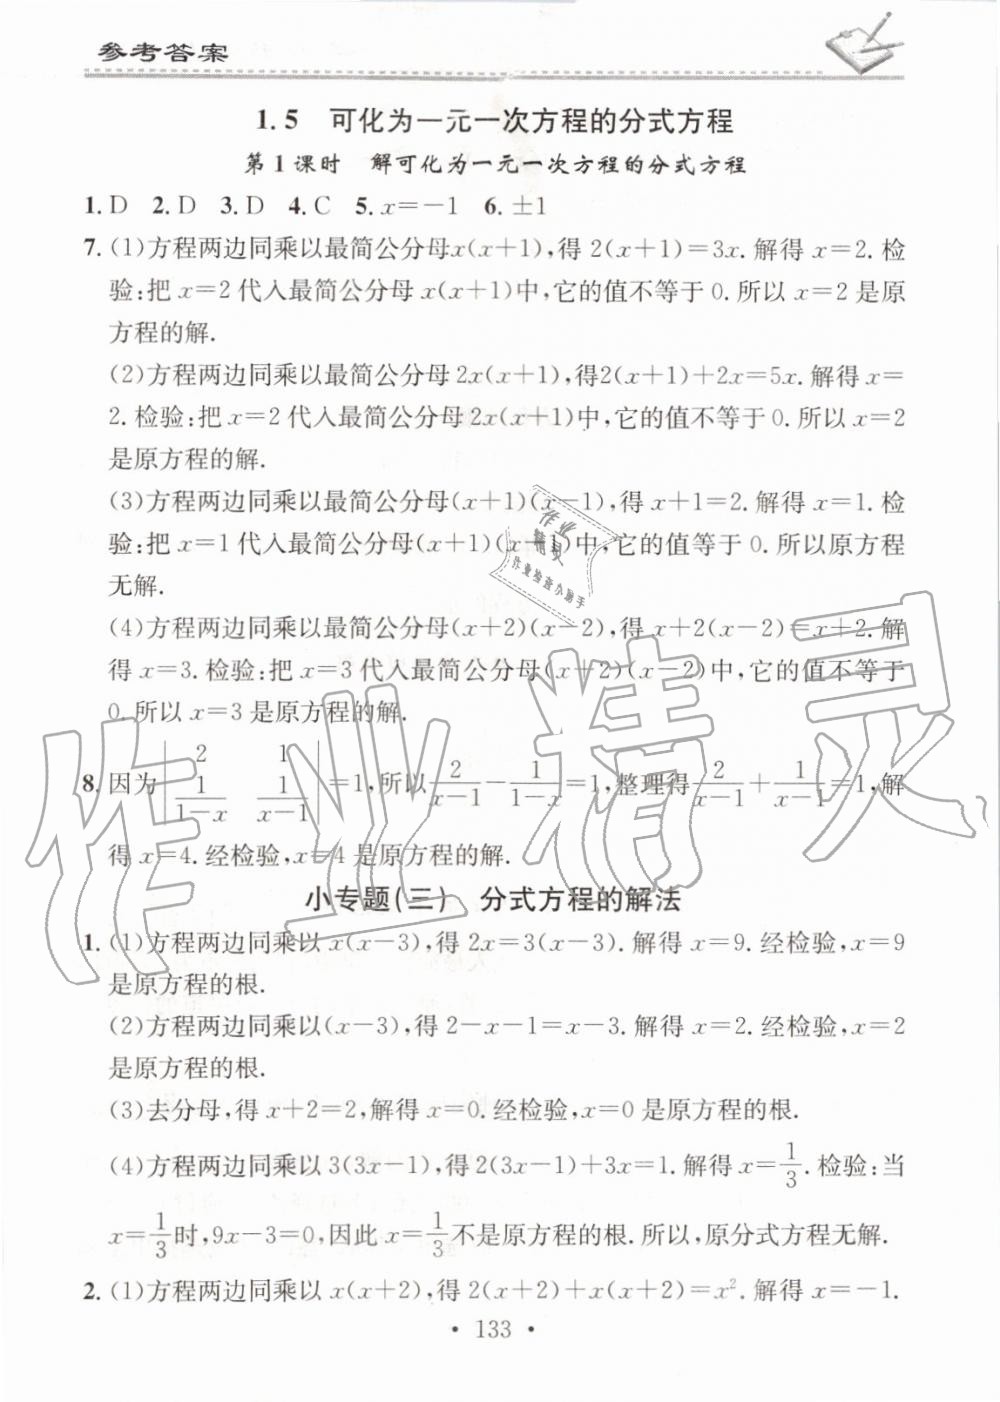 参考答案
1.5 可化为一元一次方程的分式方程
第1课时 解可化为一元一次方程的分式方程
1.D 2.D 3.D 4.C 5.x=-1 6.±1
7.(1)方程两边同乘以最简公分母x(x+1),得2(x+1)=3x.解得x=2.检
验:把x=2代入最简公分母x(x+1)中,它的值不等于0.所以x=2是原
方程的解.
(2)方程两边同乘以最简公分母2x(x+1),得2(x+1)+2x=5x.解得x=
2.检验:把x=2代入最简公分母2x(x+1)中,它的值不等于0.所以x=2
是原方程的解.
(3)方程两边同乘以最简公分母(x+1)(x-1),得x+1=2.解得x=1.检
验:把x=1代入最简公分母(x+1)(x-1)中,它的值等于0.所以原方程
无解.
(4)方程两边同乘以最简公分母(x+2)(x-2),得x+2(x-2)=x+2.解
得x=3.检验:把x=3代入最简公分母(x+2)(x-2)中,它的值不等于
0.所以x=3是原方程的解.
8.因为|2 1; 1/(1-x) 1/(x-1)|=1,所以2/(x-1)-1/(1-x)=1,整理得2/(x-1)+1/(x-1)=1,解
得x=4.经检验,x=4是原方程的解.
小专题(三) 分式方程的解法
1.(1)方程两边同乘以x(x-3),得2x=3(x-3).解得x=9.经检验,x=9
是原方程的根.
(2)方程两边同乘以(x-3),得2-x-1=x-3.解得x=2.经检验,x=2
是原方程的根.
(3)去分母,得x+2=2,解得x=0.经检验,x=0是原方程的根.
(4)方程两边同乘以3(3x-1),得2(3x-1)+3x=1.解得x=1/3.检验:当
x=1/3时,9x-3=0,因此x=1/3不是原方程的根.所以,原分式方程无解.
2.(1)方程两边同乘以x(x+2),得2(x+2)+x(x+2)=x².解得x=-1.
·133·
作业精灵
作业
精灵
作业检查小助手